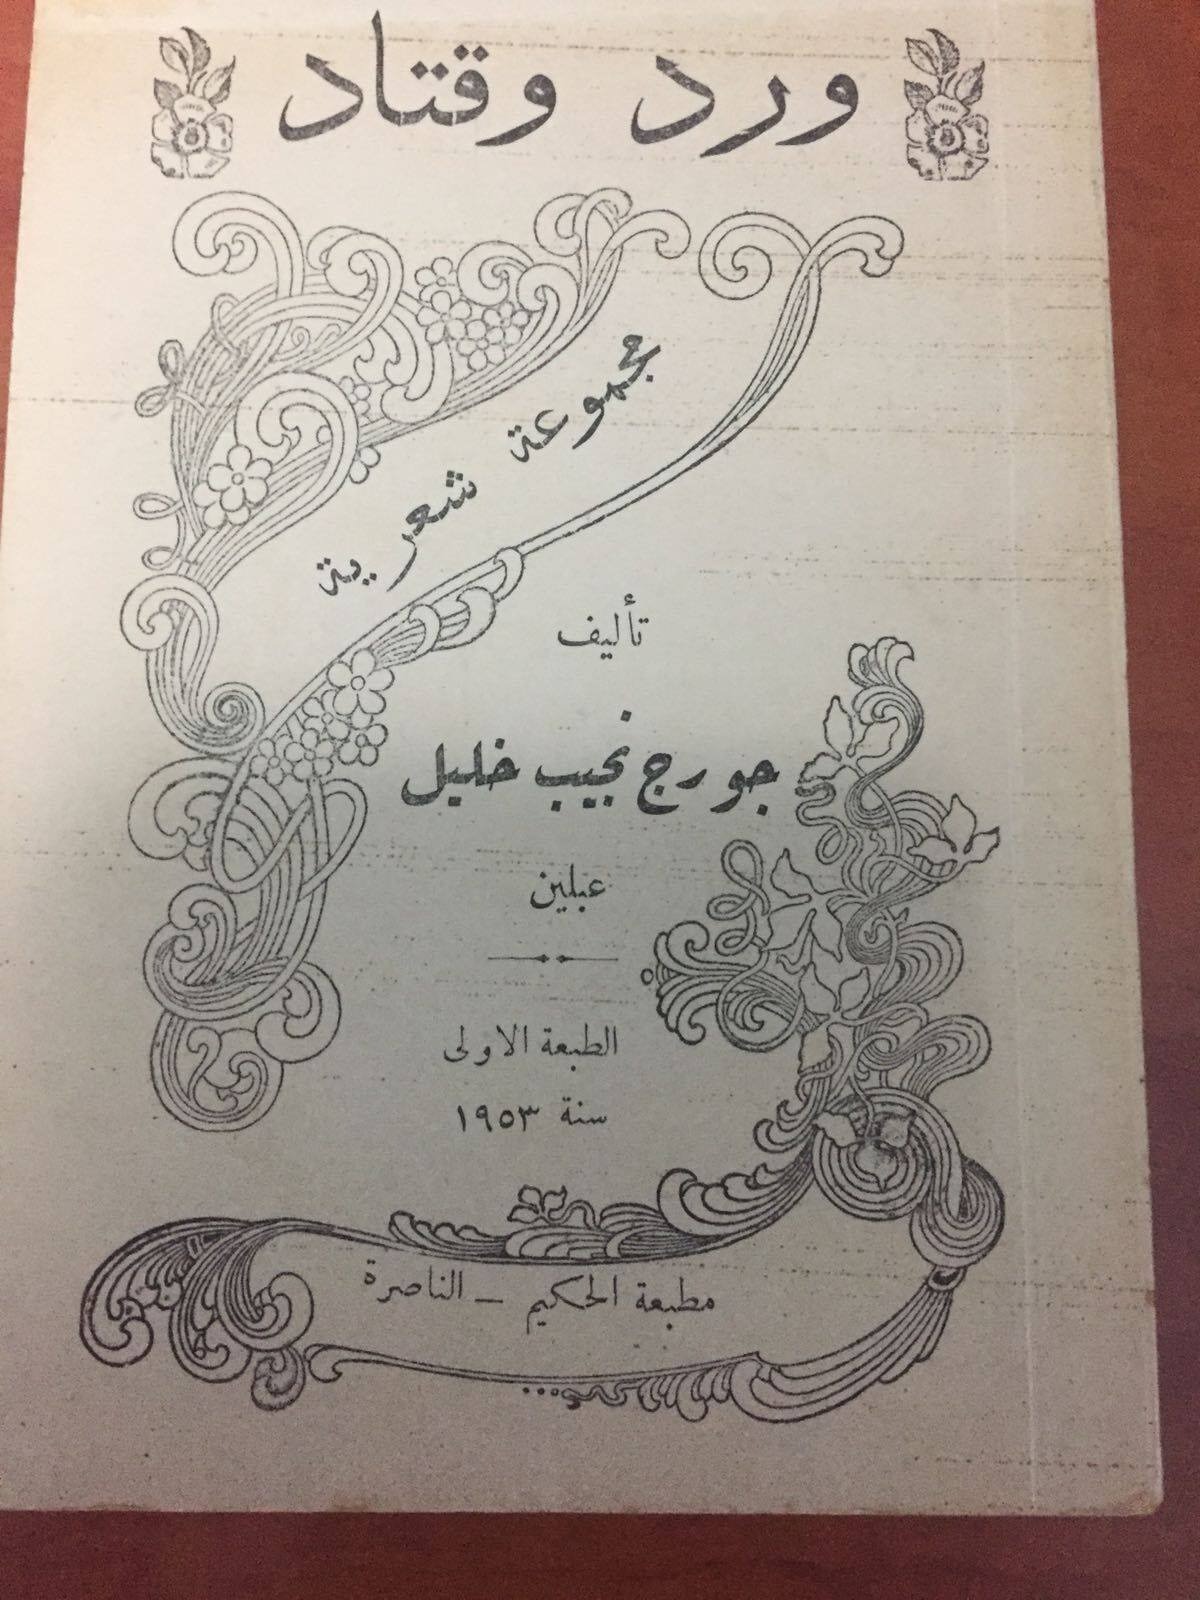 ورد وقتاد
مجموعة شعرية
تأليف
جورج نجيب خليل
عبلين
الطبعة الاولى
سنة ١٩٥٣
مطبعة الحكيم – الناصرة